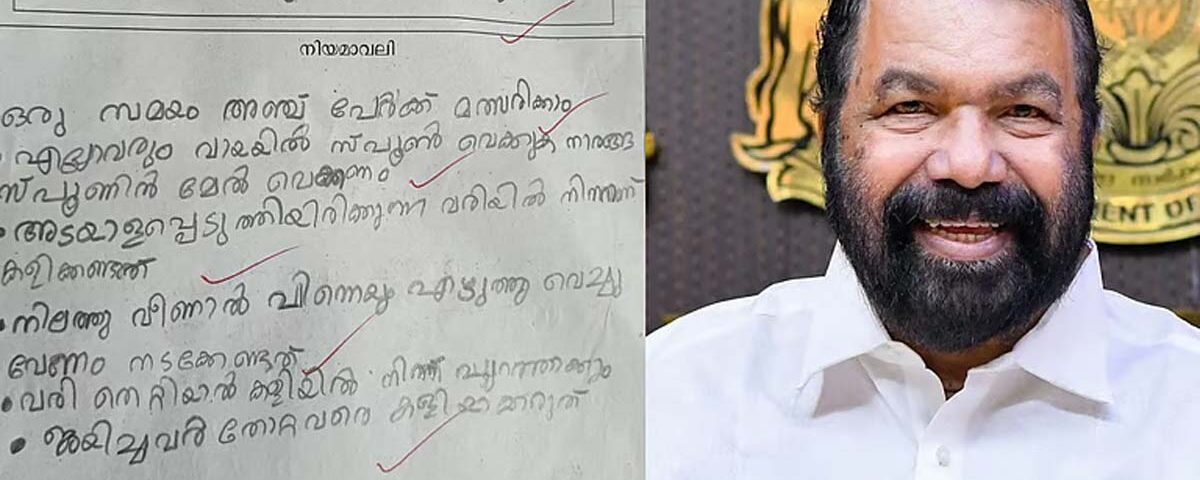 നിയമാവലി
ഒരു സമയം അഞ്ച് പേർക്ക് മത്സരിക്കാം
• എല്ലാവരും വായയിൽ സ്പൂൺ വെക്കുക നാരങ്ങ
സ്പൂണിൻ മേൽ വെക്കണം
• അടയാളപ്പെടുത്തിയിരിക്കുന്ന വരിയിൽ നിന്നാണ്
കളിക്കണ്ടത്
• നിലത്തു വീണാൽ പിന്നെയും എടുത്തു വെച്ചു
വേണം നടക്കേണ്ടത്
• വരി തെറ്റിയാൽ കളിയിൽ നിന്ന് പുറത്താക്കാം
• ജയിച്ചവർ തോറ്റവരെ കളിയാക്കരുത്
MENT OF